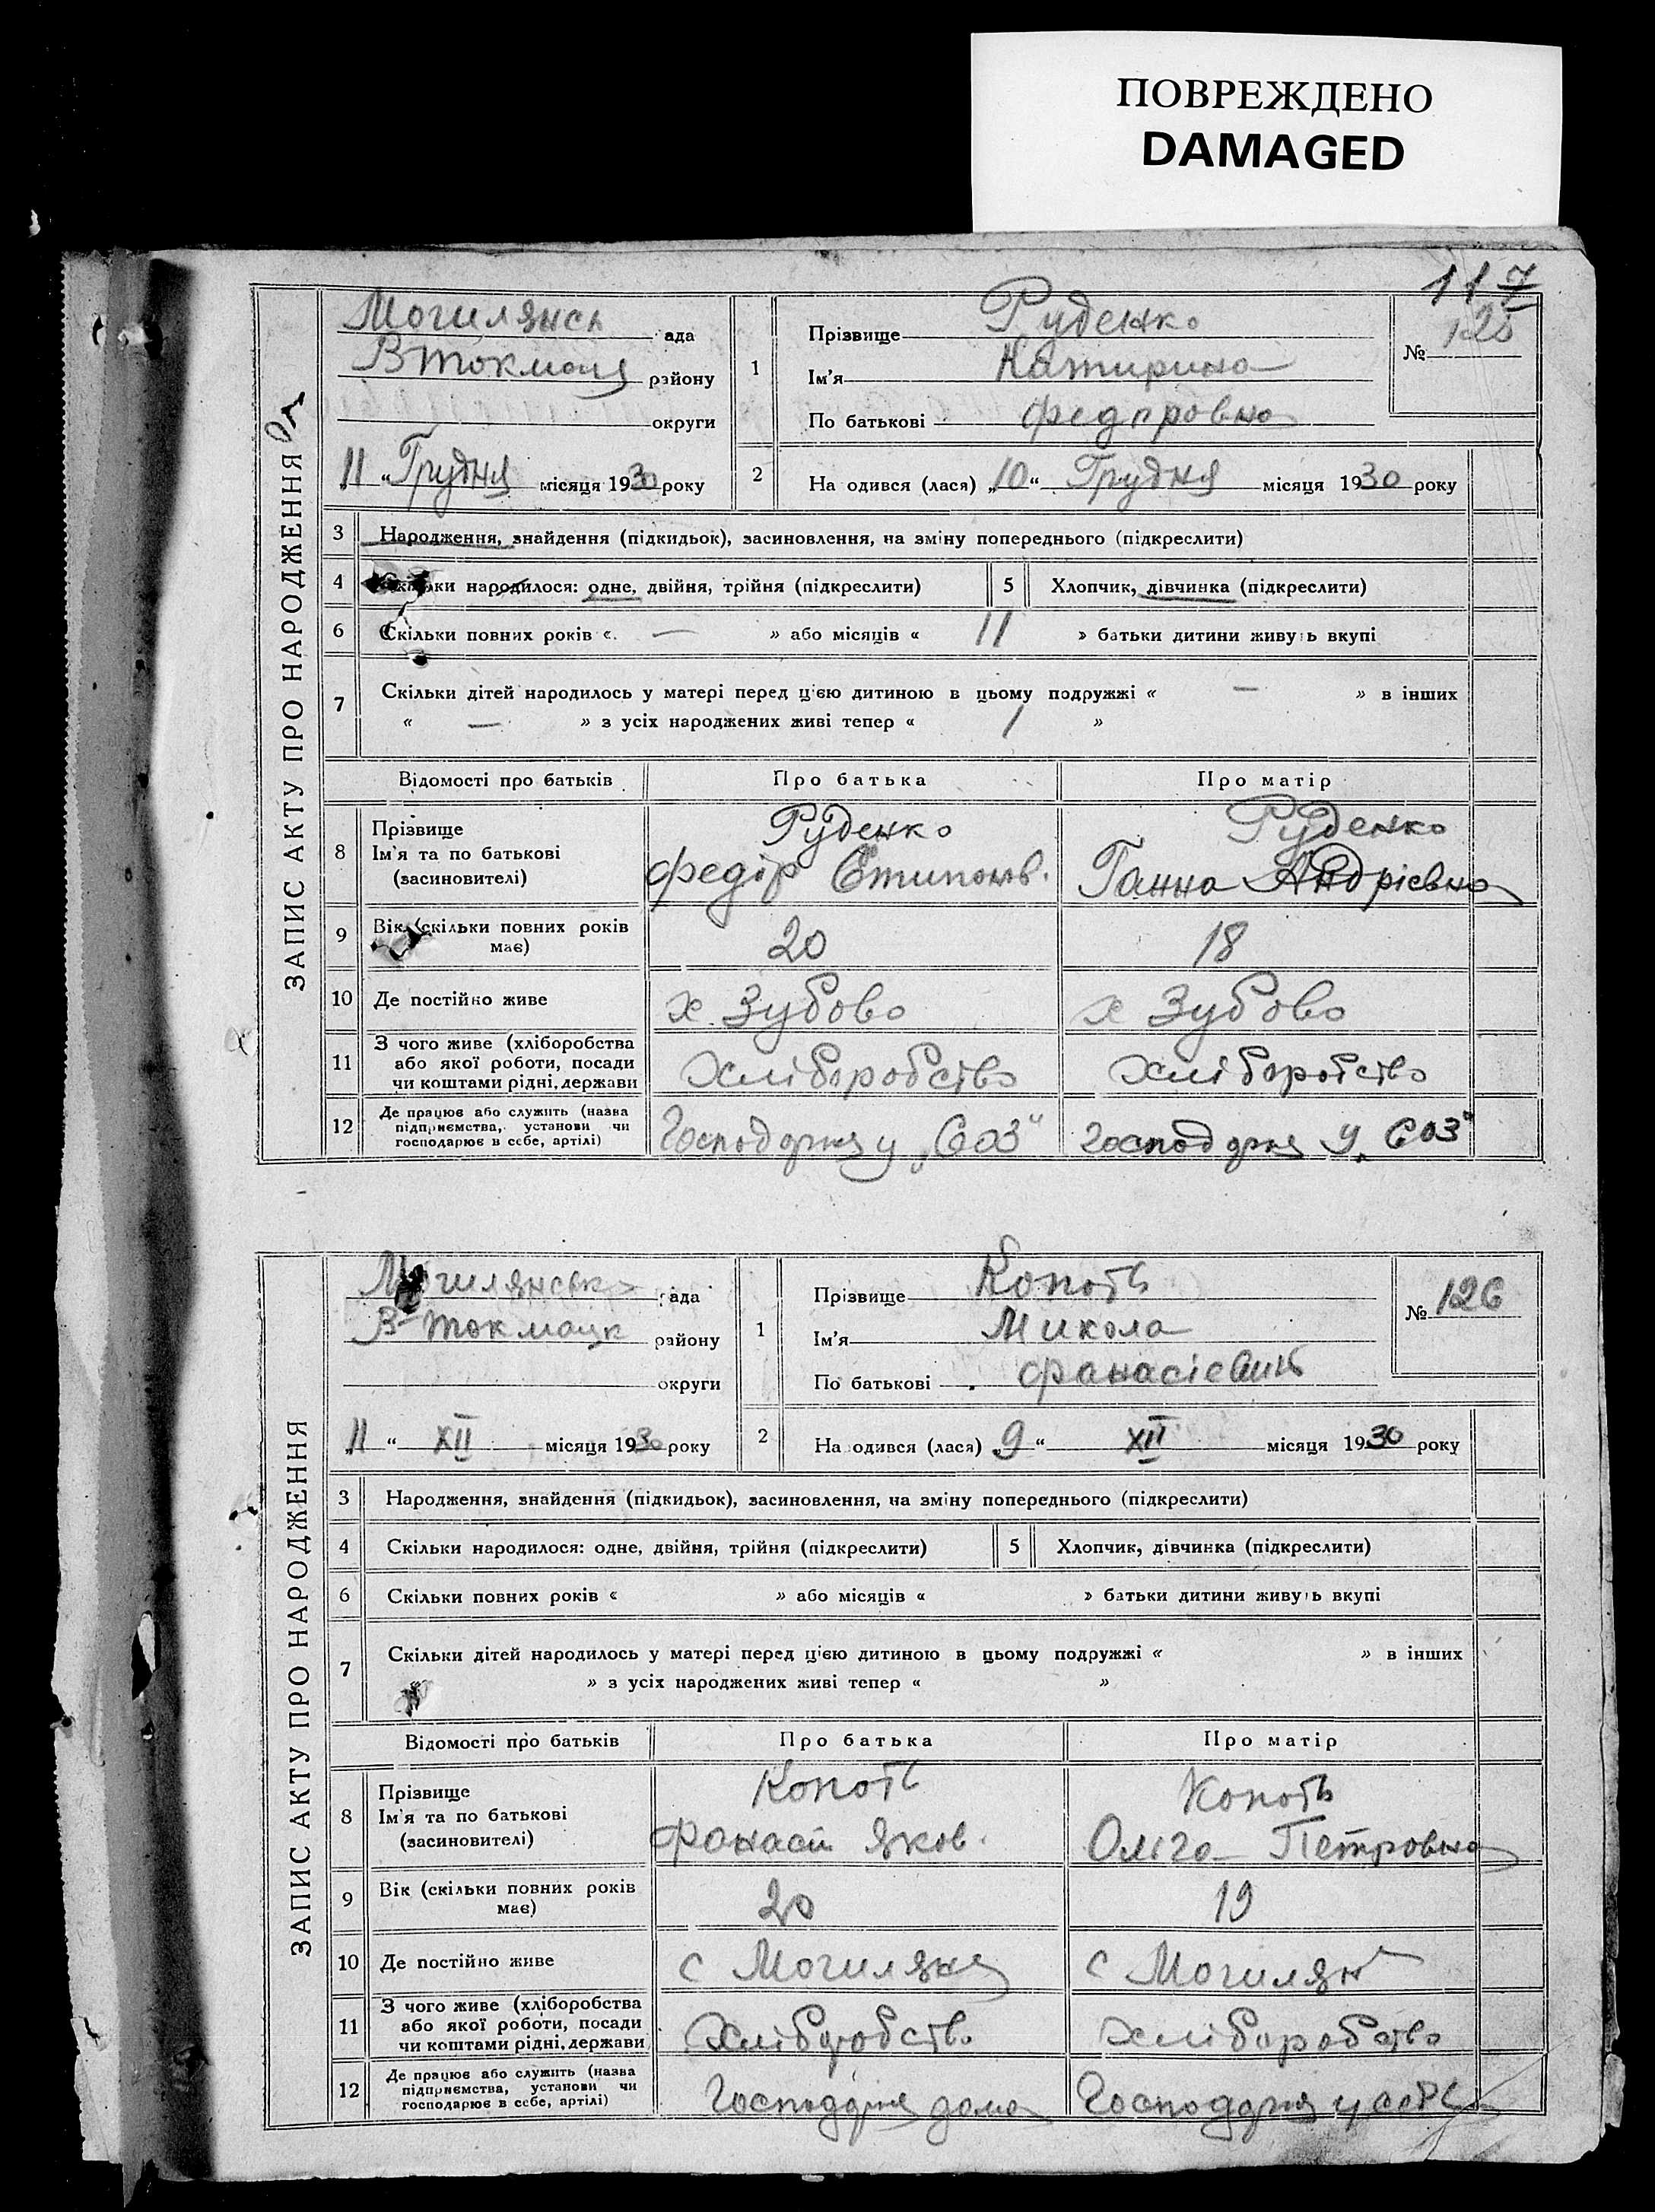 ПОВРЕЖДЕНО
DAMAGED
117
ЗАПИС АКТУ ПРО НАРОДЖЕННЯ
Могилянськ ада
В Токмац району
округи
11 “ Грудня місяця 1930 року
1
Прізвище Руденко
Ім'я Катирина
По батькові Федоровна
№ 125
2
На одився (лася) „10“ Грудня місяця 1930 року
3 Народження, знайдення (підкидьок), засиновлення, на зміну попереднього (підкреслити)
4 Скільки народилося: одне, двійня, трійня (підкреслити) 5 Хлопчик, дівчинка (підкреслити)
6 Скільки повних років « — » або місяців « 11 » батьки дитини живуть вкупі
7 Скільки дітей народилось у матері перед цією дитиною в цьому подружжі « — » в інших
« — » з усіх народжених живі тепер « 1 »
Відомості про батьків Про батька Про матір
8 Прізвище Руденко Руденко
Ім'я та по батькові Федір Ганна Андрієвна
(засновителі)
9 Вік (скільки повних років має) 20 18
10 Де постійно живе х Зубово х Зубово
11 З чого живе (хліборобства або якої роботи, посади чи коштами рідні, держави Хліборобство Хліборобство
12 Де працює або служить (назва підприємства, установи чи господарює в себе, артілі) Господдрня у „СОЗ“ Господдрня у „СОЗ“
ЗАПИС АКТУ ПРО НАРОДЖЕННЯ
Могилянська рада
В-Токмацк району
округи
„11 “ XII місяця 1930 року
1
Прізвище Копоть
Ім'я Микола
По батькові Фанасієвич
№ 126
2
На одився (лася) „9 “ XII місяця 1930 року
3 Народження, знайдення (підкидьок), засиновлення, на зміну попереднього (підкреслити)
4 Скільки народилося: одне, двійня, трійня (підкреслити) 5 Хлопчик, дівчинка (підкреслити)
6 Скільки повних років « » або місяців « » батьки дитини живуть вкупі
7 Скільки дітей народилось у матері перед цією дитиною в цьому подружжі « » в інших
» з усіх народжених живі тепер « »
Відомості про батьків Про батька Про матір
8 Прізвище Копоть Копоть
Ім'я та по батькові Фанасій Яков. Оліга Петровна
(засиновителі)
9 Вік (скільки повних років має) 20 19
10 Де постійно живе с Могиляна с Могилян
11 З чого живе (хліборобства або якої роботи, посади чи коштами рідні, держави Хліборобство Хліборобство
12 Де працює або служить (назва підприємства, установи чи господарює в себе, артілі) Господдрня дома Господдрня у